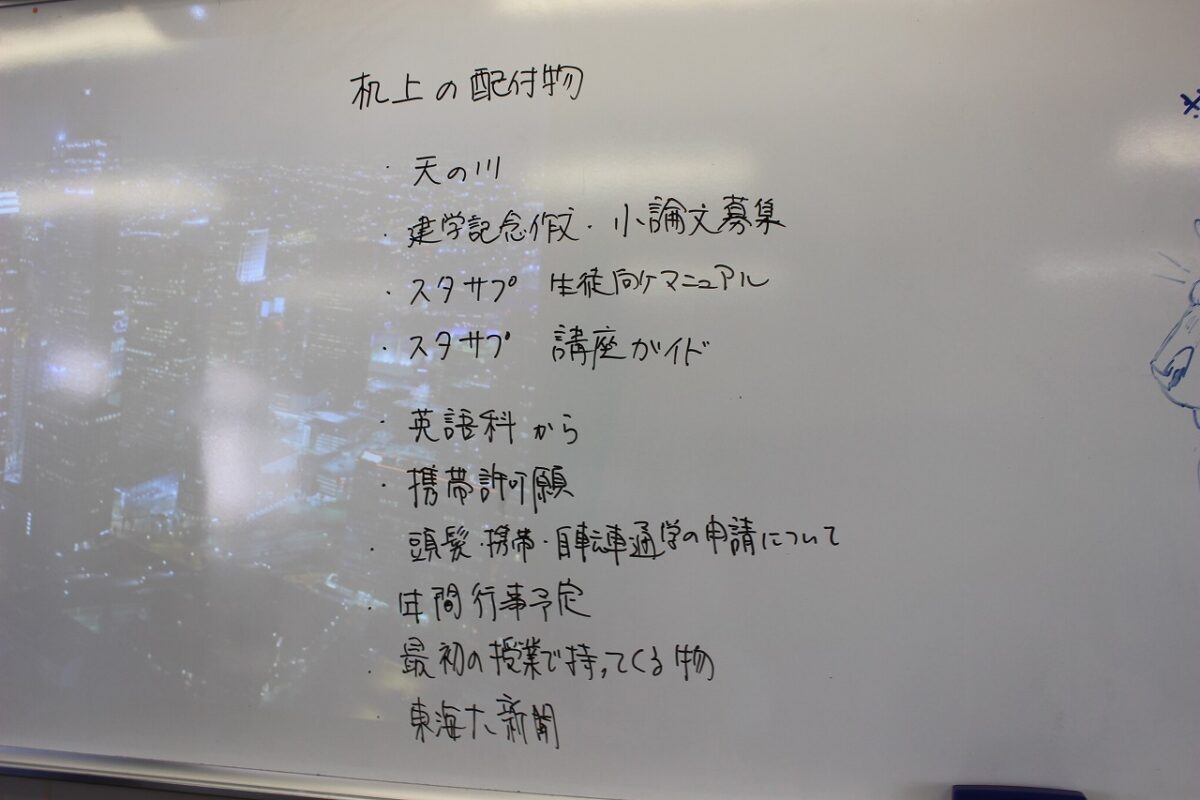 机上の配付物
・天の川
・建学記念作文・小論文募集
・スタサプ 生徒向ケマニュアル
・スタサプ 講座ガイド
・英語科から
・携帯許可願
・頭髪・携帯・自転車通学の申請について
・年間行事予定
・最初の授業で持ってくる物
・東海大新聞
※